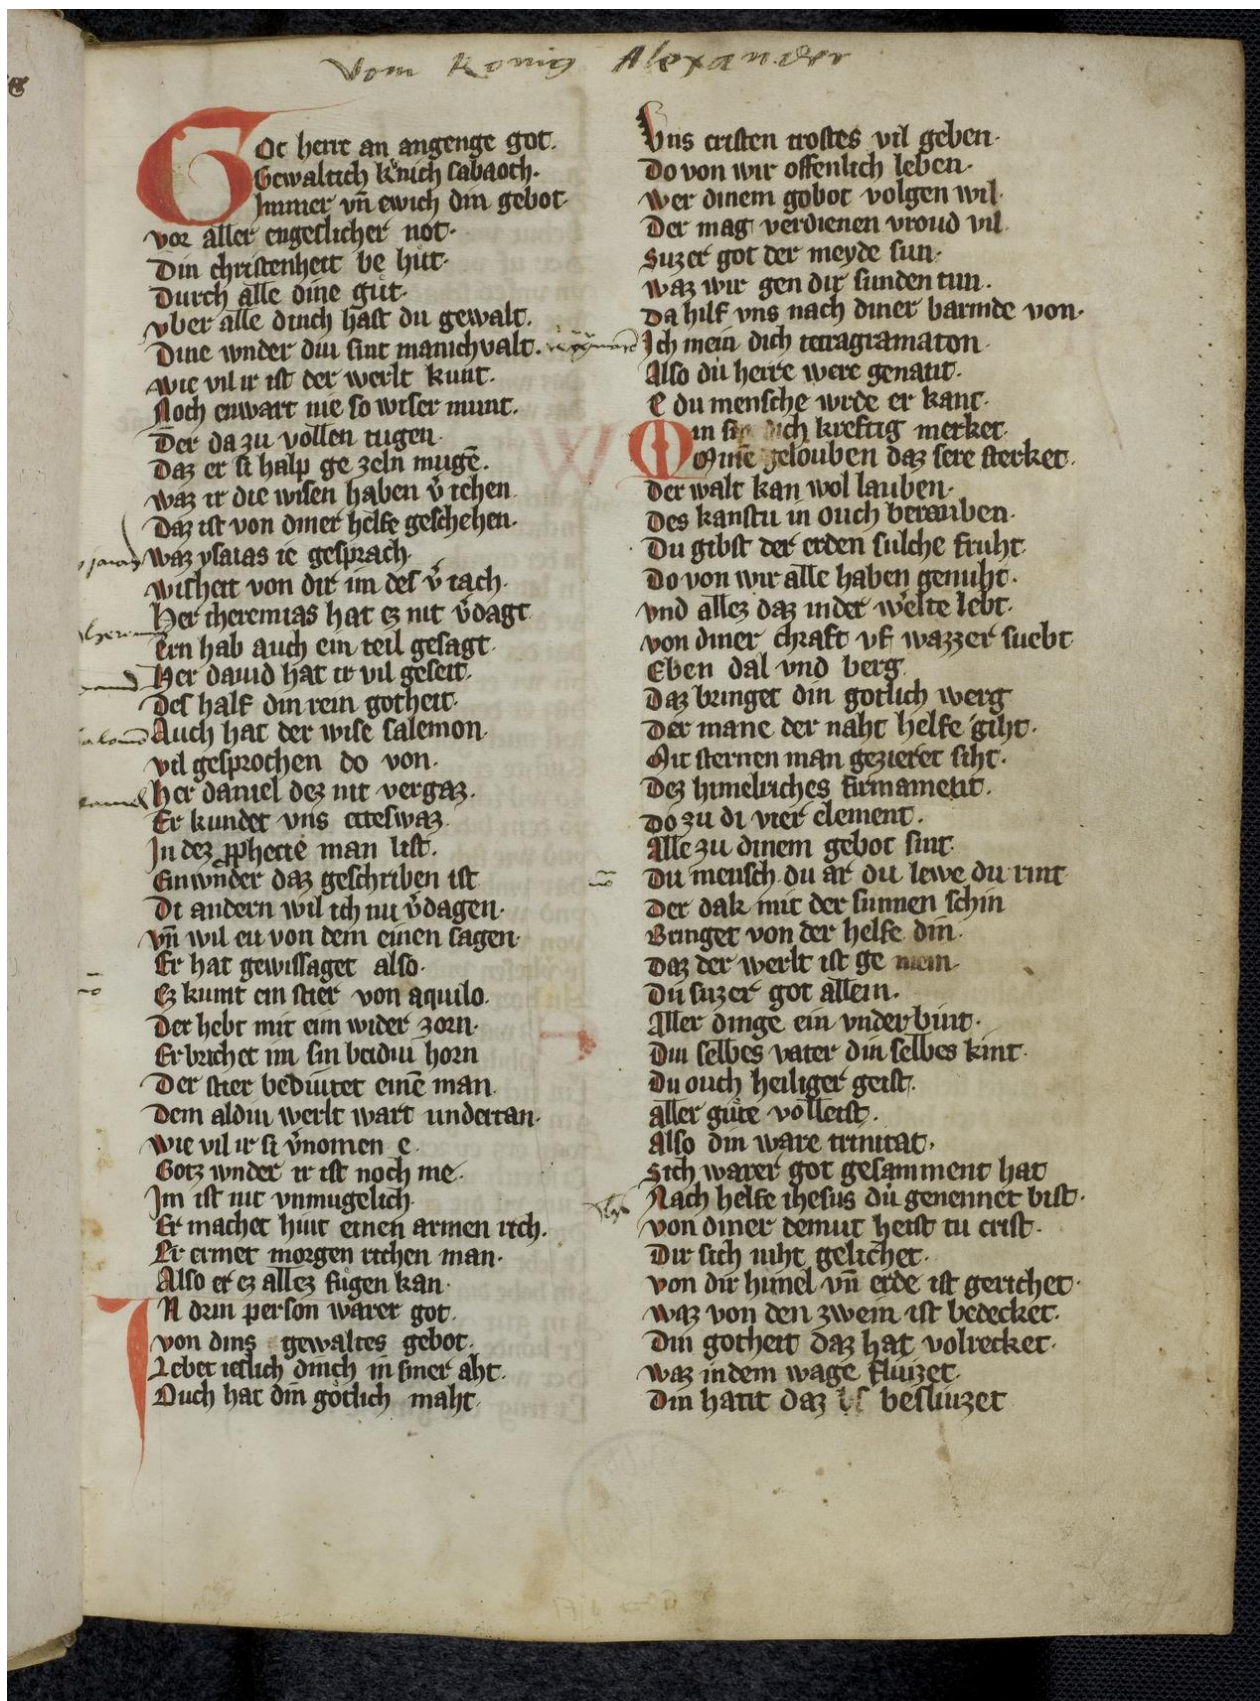 Vom Konig Alexander
Got herre an angenge got.
Gewaltich kͮnich sabaoth.
Immer vn̄ ewich din gebot.
vor aller engeslicher not.
Din christenheit be hůt.
Durch alle dine gůt.
vber alle dinch hast du gewalt.
Dine wnder diu sint manichvalt.
wie vil ir ist der werlt kunt.
Noch enwart nie so wiser munt.
Der da zu vollen tugen
Daz er si halp ge zeln mugē.
waz ir die wisen haben v̄ iehen
Daz ist von diner helfe geschehen.
waz ysaias ie gesprach.
wisheit von dir im des v̄ iach.
Her iheremias hat ez nit v̄dagt
Ern hab auch ein teil gesagt.
Her dauid hat ir vil geseit.
Des half din rein gotheit.
Auch hat der wise salemon.
vil gesprochen do von.
Her daniel dez nit vergaz.
Er kundet vns eteswaz.
In dez ꝓphecie man list.
Ein wnder daz geschriben ist
Di andern wil ich nu v̄dagen.
vn̄ wil eu von dem einen sagen.
Er hat gewissaget also.
Ez kumt ein stier von aquilo.
Der hebt mit eim wider zorn.
Er brichet im sin beidiu horn
Der stier bediutet einē man.
Dem aldiu werlt wart undertan.
wie vil ir si v̄nomen e.
Gotz wnder ir ist noch me.
Im ist nit vnmugelich.
Er machet hiut einen armen rich.
Er ermet morgen richen man.
Also er ez allez fůgen kan.
IN drin person warer got.
von dins gewaltes gebot.
Lebet ietlich dinch in siner aht.
Ouch hat din götlich maht.
Vns cristen trostes vil geben.
Do von wir offenlich leben.
wer dinem gobot volgen wil.
Der mag verdienen vroud vil.
Suzer got der meyde sun.
waz wir gen dir sunden tun.
Da hilf vns nach diner barmde von.
Ich mein dich tetragramaton.
Also du herre were genant.
E du mensche wrde er kant.
Min si dich kreftig merket.
Minē gelouben daz sere sterket.
Der walt kan wol lauben.
Des kanstu in ouch berauben.
Du gibst der erden sulche fruht.
Do von wir alle haben genuht.
vnd allez daz in der welte lebt.
von diner chraft vf wazzer suebt
Eben dal vnd berg.
Daz bringet din gotlich werg
Der mane der naht helfe giht.
Mit sternen man gezieret siht.
Dez himelriches firmament.
Do zu di vier element.
Alle zu dinem gebot sint.
Du mensch du ar du lewe du rint
Der dak mit der sunnen schin
Bringet von der helfe din.
Daz der werlt ist ge mein.
Du suzer got allein.
Aller dinge ein vnderbint.
Din selbes vater din selbes kint.
Du ouch heiliger geist.
aller gůte volleist.
Also din ware trinitat.
Sich warer got gesamment hat
Nach helfe ihesus du genennet bist.
von diner demut heist tu crist.
Dir sich niht gelichet.
von dir himel vn̄ erde ist gerichet.
waz von den zwein ist bedecket.
Din gotheit daz hat volrecket.
waz in dem wage fluizet.
Din hant daz besliuzet